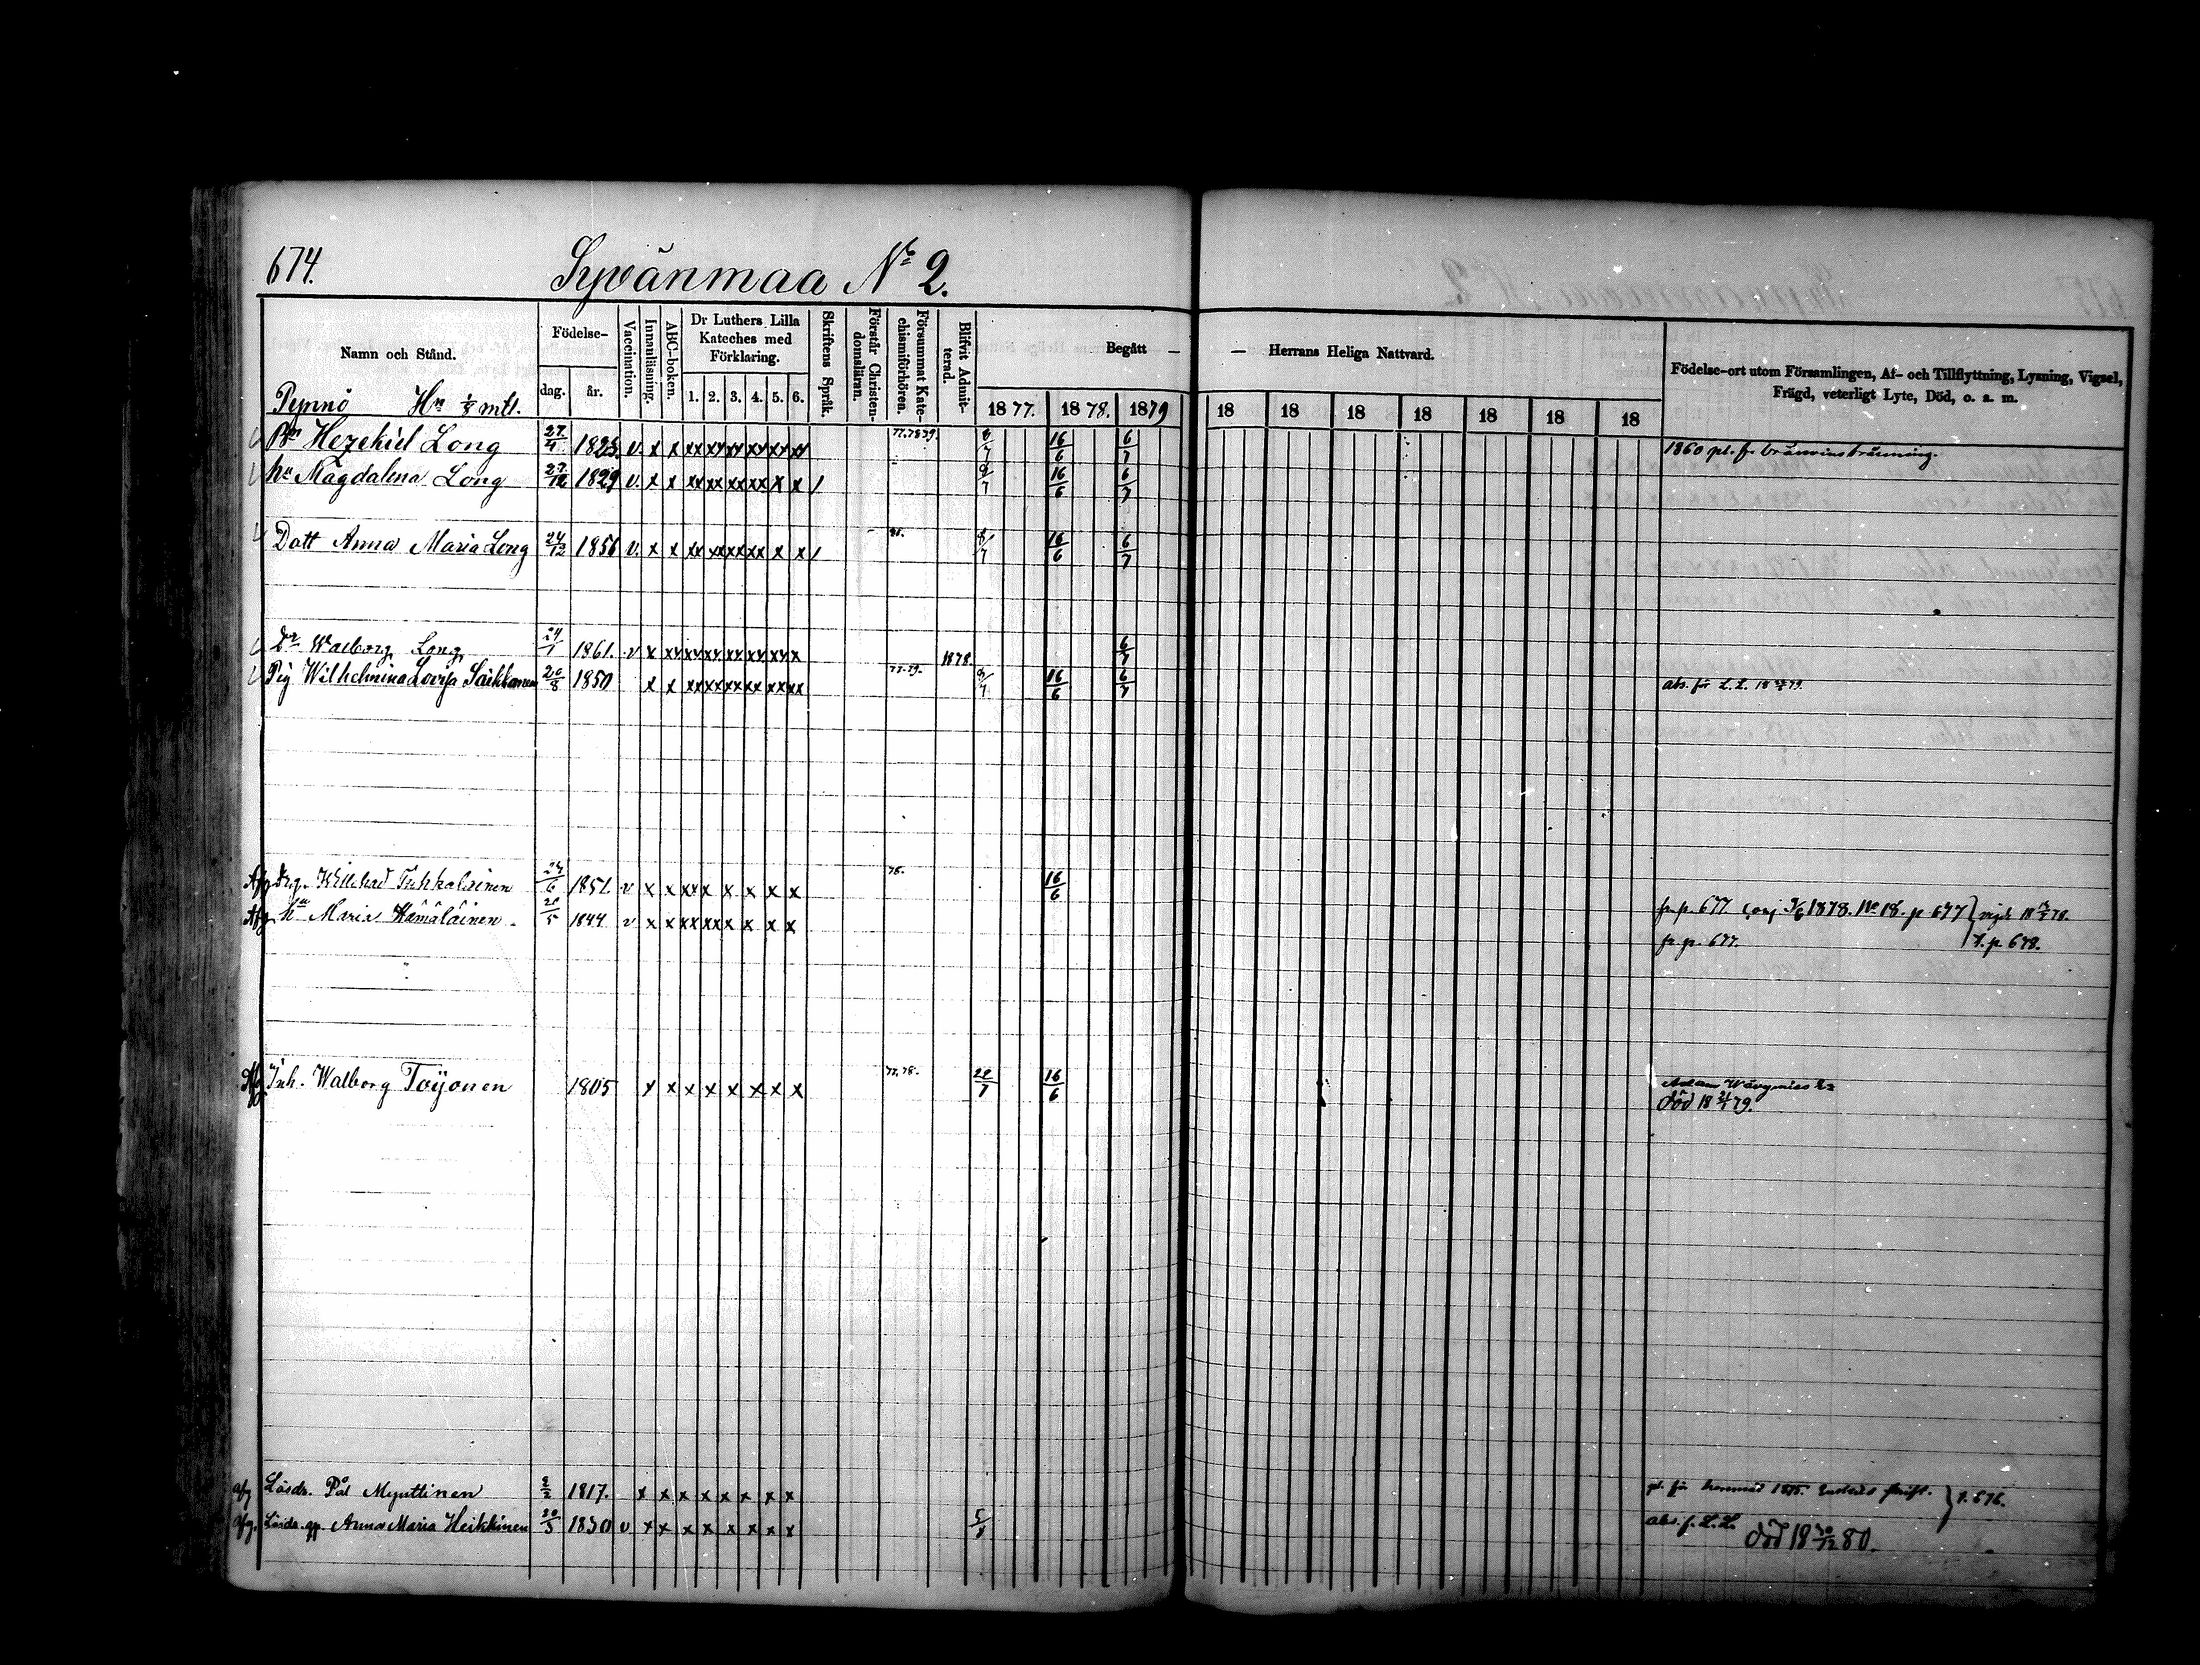 674.
Syvänmaa No 2.
Namn och Stånd.
Födelse-
dag.
år.
Vaccination.
Innanläsning.
ABC-boken.
Dr Luthers Lilla Kateches med Förklaring.
1. 2. 3. 4. 5. 6.
Skriftens Språk.
Förstår Christen-domsläran.
Försummat Kate-chismiförhören.
Blifvit Admit-terad.
Begått — — Herrans Heliga Nattvard.
1877. 1878. 1879 18 18 18 18 18 18 18
Födelse-ort utom Församlingen, Af- och Tillflyttning, Lysning, Vigsel, Frägd, veterligt Lyte, Död, o. s. m.
Pynnö Hn mtl.
Bn Hezekiel Long 27/4 1823. v. x x xx xx xx xx xx xx 77.78.79. 8/7 16/6 6/7 1860 pl. f. bränvinsbränning.
hu Magdalena Long 27/12 1829 v. x x xx xx xx xx x x / 8/7 16/6 6/7
Dott Anna Maria Long 24/12 1856 v. x x xx xx xx xx x x / 8/7 16/6 6/7
Dr Walborg Long 24/1 1861. v x xx xx xx xx xx xx x 1878. 6/7
Pig Wilhelmina Lovisa Saikkonen 20/8 1850 x x xx xx xx xx xx xx 77.79. 8/7 16/6 6/7 abs. för L. L.
Afg Drg. Willehad Tukkalainen 24/6 1851. v x x xx x x x x x 78. 16/6 fr. p. 677 conj 1878. No 18. p 677
Afg hu Maria Hämäläinen. 20/5 1844 v x x xx xx x x x x fr. p. 677. t. p 678.
Afg Inh. Walborg Toijonen 1805 x x x x x x x x 77.78. 20/7 16/6
död 18 21/1 79.
afg Lösdr. Pål Mynttinen 2/2 1817. x x x x x x x x pl. för 1875. t. 676.
afg. Lösdr. gp. Anna Maria Heikkinen 20/3 1830 v x x x x x x x x 5/8 abs. f. L. L.
död 18 30/12 80.